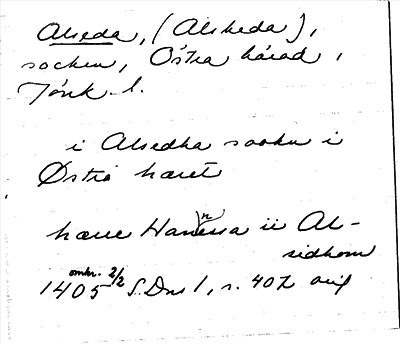 Alseda, (Alsheda),
socken, Östra härad,
Jönk. l.
i Alsedha sookn i
Østra hæret
herre Hannessa ii Al-
sidhom
1405 omkr. 2/2 S.Dns 1, s. 407 orig